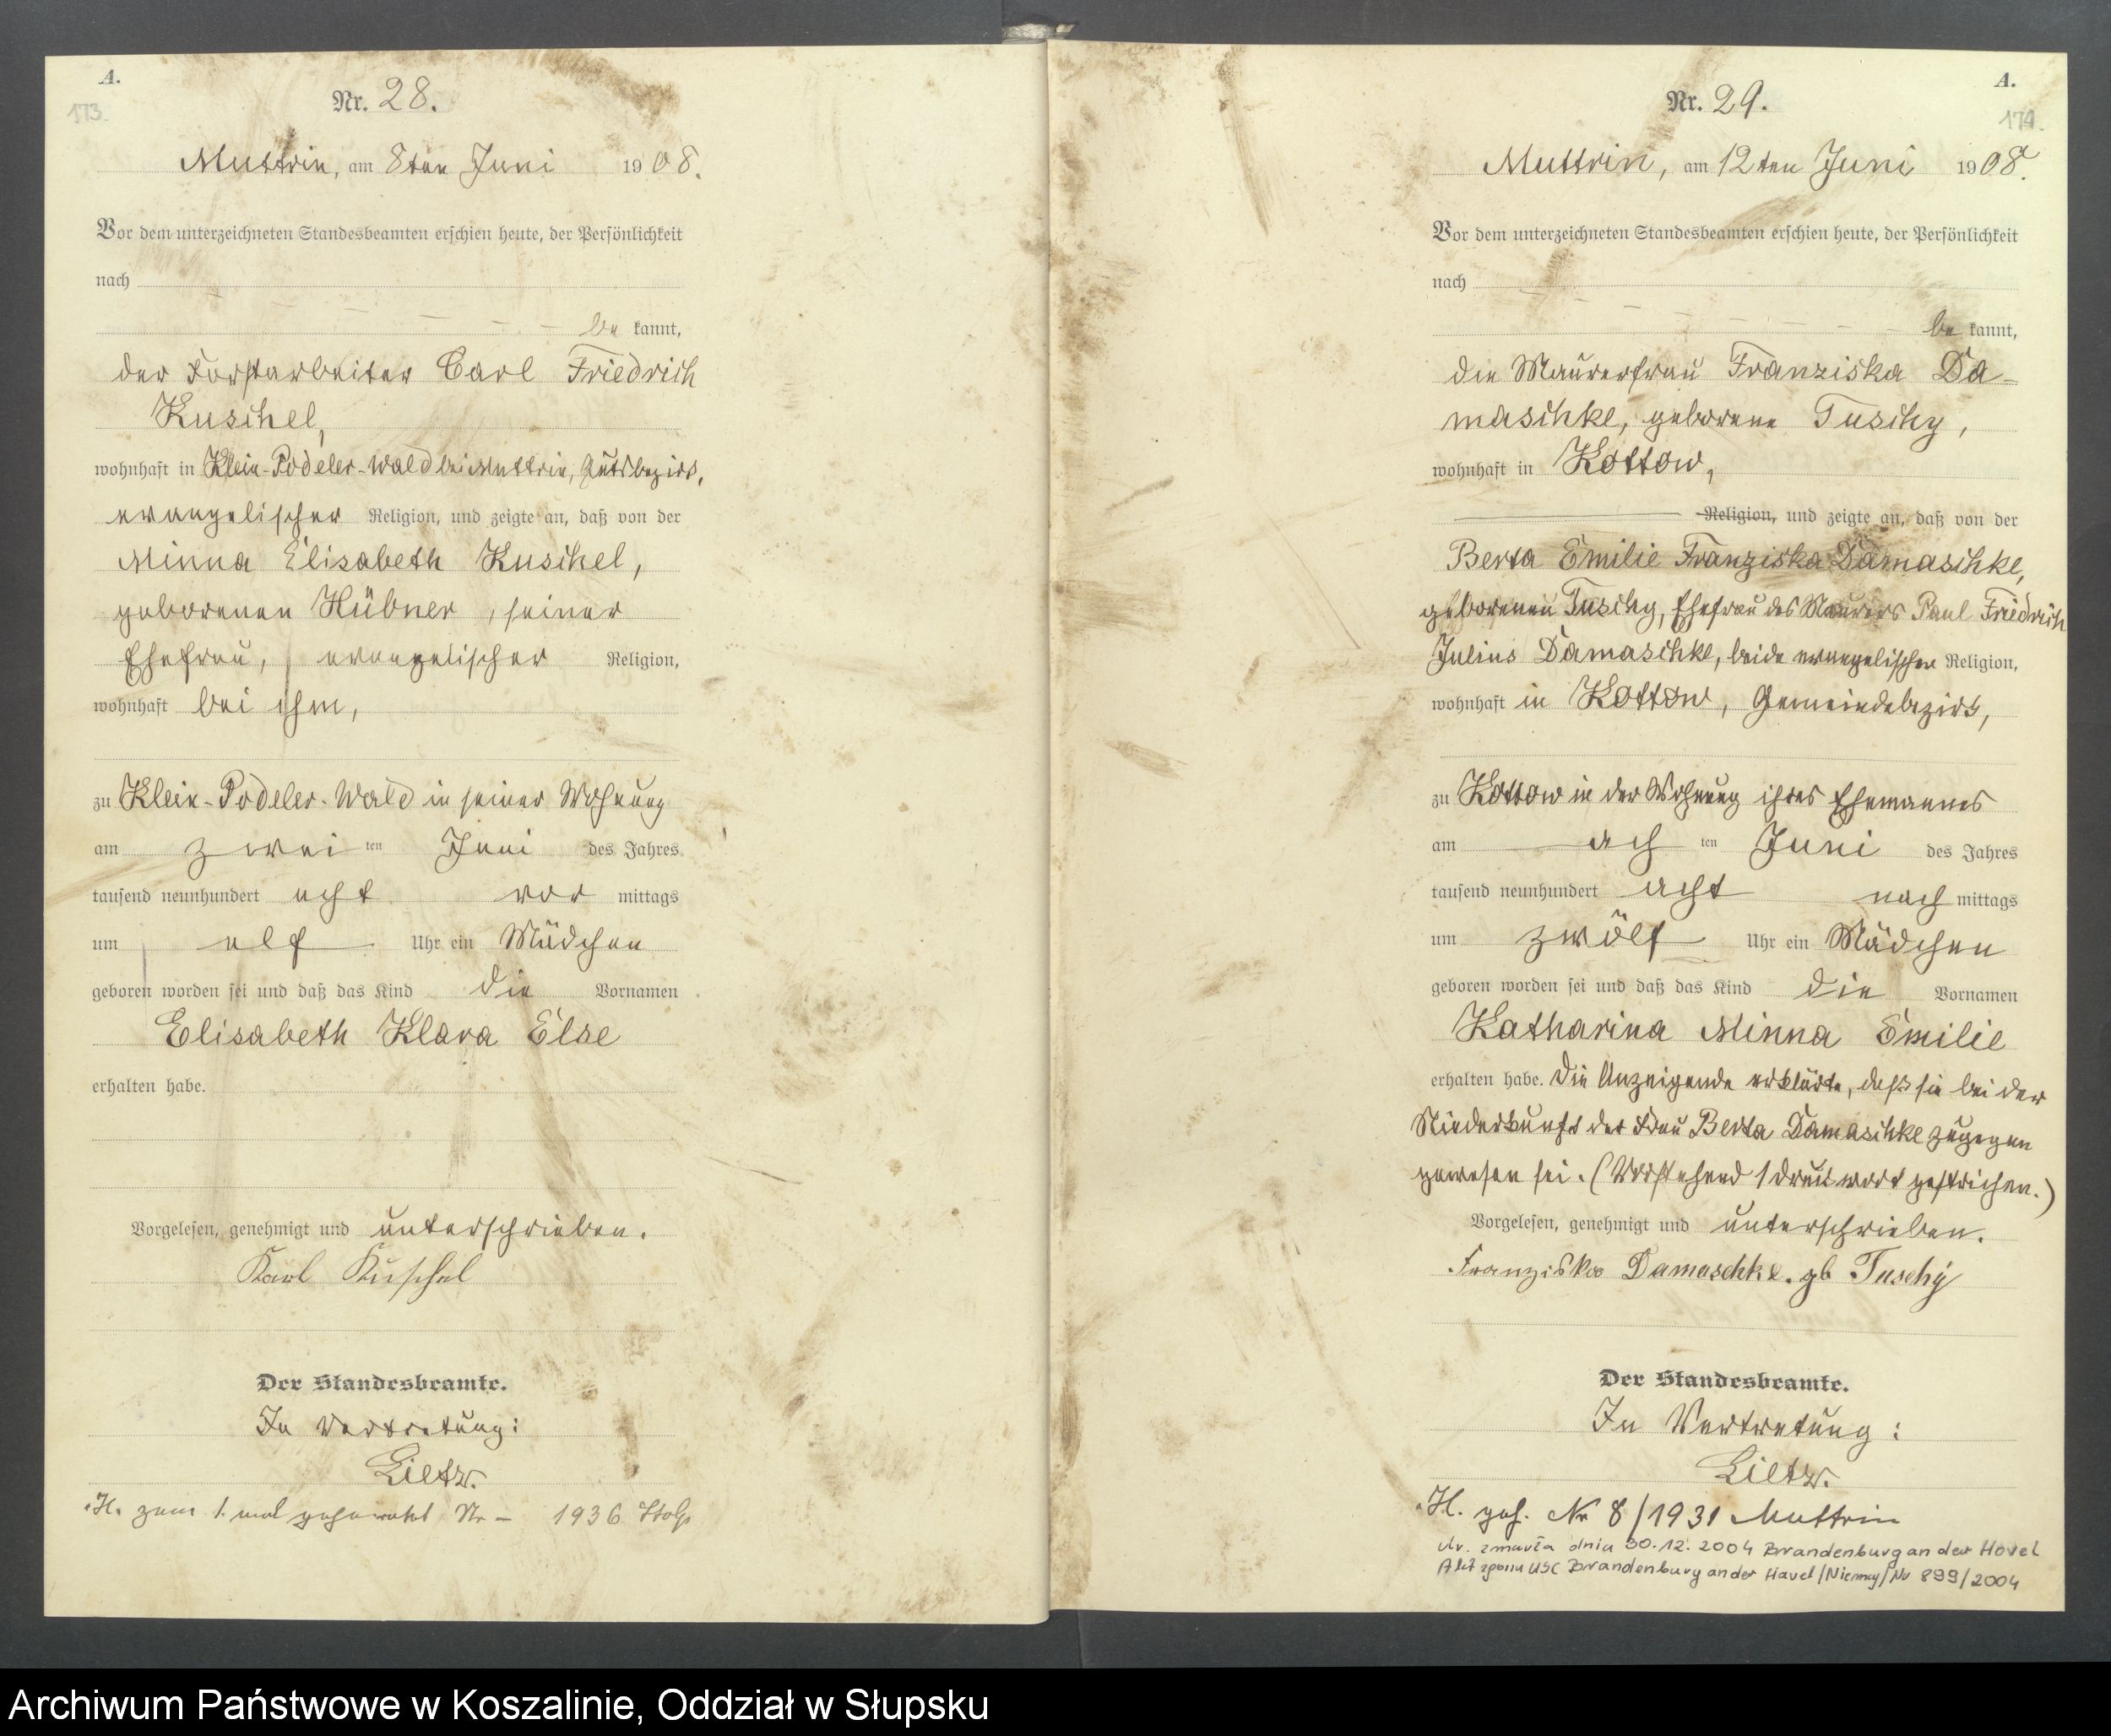 A.
173.
Nr. 28.
Muttrin, am 8ten Juni 1908.
Vor dem unterzeichneten Standesbeamten erschien heute, der Persönlichkeit
nach
be kannt,
der Forstarbeiter Carl Friedrich
Kuschel,
wohnhaft in Klein-Podeler-Wald bei Muttrin, Gutsbezirk,
evangelischer Religion, und zeigte an, daß von der
Minna Elisabeth Kuschel,
geborenen Hübner, seiner
Ehefrau, evangelischer Religion,
wohnhaft bei ihm,
zu Klein-Podeler-Wald in seiner Wohnung
am zwei ten Juni des Jahres
tausend neunhundert acht vor mittags
um elf Uhr ein Mädchen
geboren worden sei und daß das Kind die Vornamen
Elisabeth Klara Else
erhalten habe.
Vorgelesen, genehmigt und unterschrieben.
Karl Kuschel
Der Standesbeamte.
In Vertretung:
Lietz.
H. zum 1. mal geheiratet Nr – 1936 Stolp
A.
174.
Nr. 29.
Muttrin, am 12ten Juni 1908.
Vor dem unterzeichneten Standesbeamten erschien heute, der Persönlichkeit
nach
be kannt,
die Maurerfrau Franziska Da-
maschke, geborene Tuschy,
wohnhaft in Kottow,
Religion, und zeigte an, daß von der
Berta Emilie Franziska Damaschke,
geborenen Tuschy, Ehefrau des Maurers Paul Friedrich
Julius Damaschke, beide evangelischer Religion,
wohnhaft in Kottow, Gemeindebezirk,
zu Kottow in der Wohnung ihres Ehemannes
am ach ten Juni des Jahres
tausend neunhundert acht nach mittags
um zwölf Uhr ein Mädchen
geboren worden sei und daß das Kind die Vornamen
Katharina Minna Emilie
erhalten habe. Die Anzeigende erklärte, daß sie bei der
Niederkunft der Frau Berta Damaschke zugegen
gewesen sei. (Vorstehend 1 Druckwort gestrichen.)
Vorgelesen, genehmigt und unterschrieben.
Franziska Damaschke. gb Tuschy
Der Standesbeamte.
In Vertretung:
Lietz.
H. geh. Nr 8/1931 Muttrin
zmarła dnia 30.12.2004 Brandenburg an der Havel
Akt zgonu USC Brandenburg an der Havel/Niemcy/Nr 899/2004
Archiwum Państwowe w Koszalinie, Oddział w Słupsku